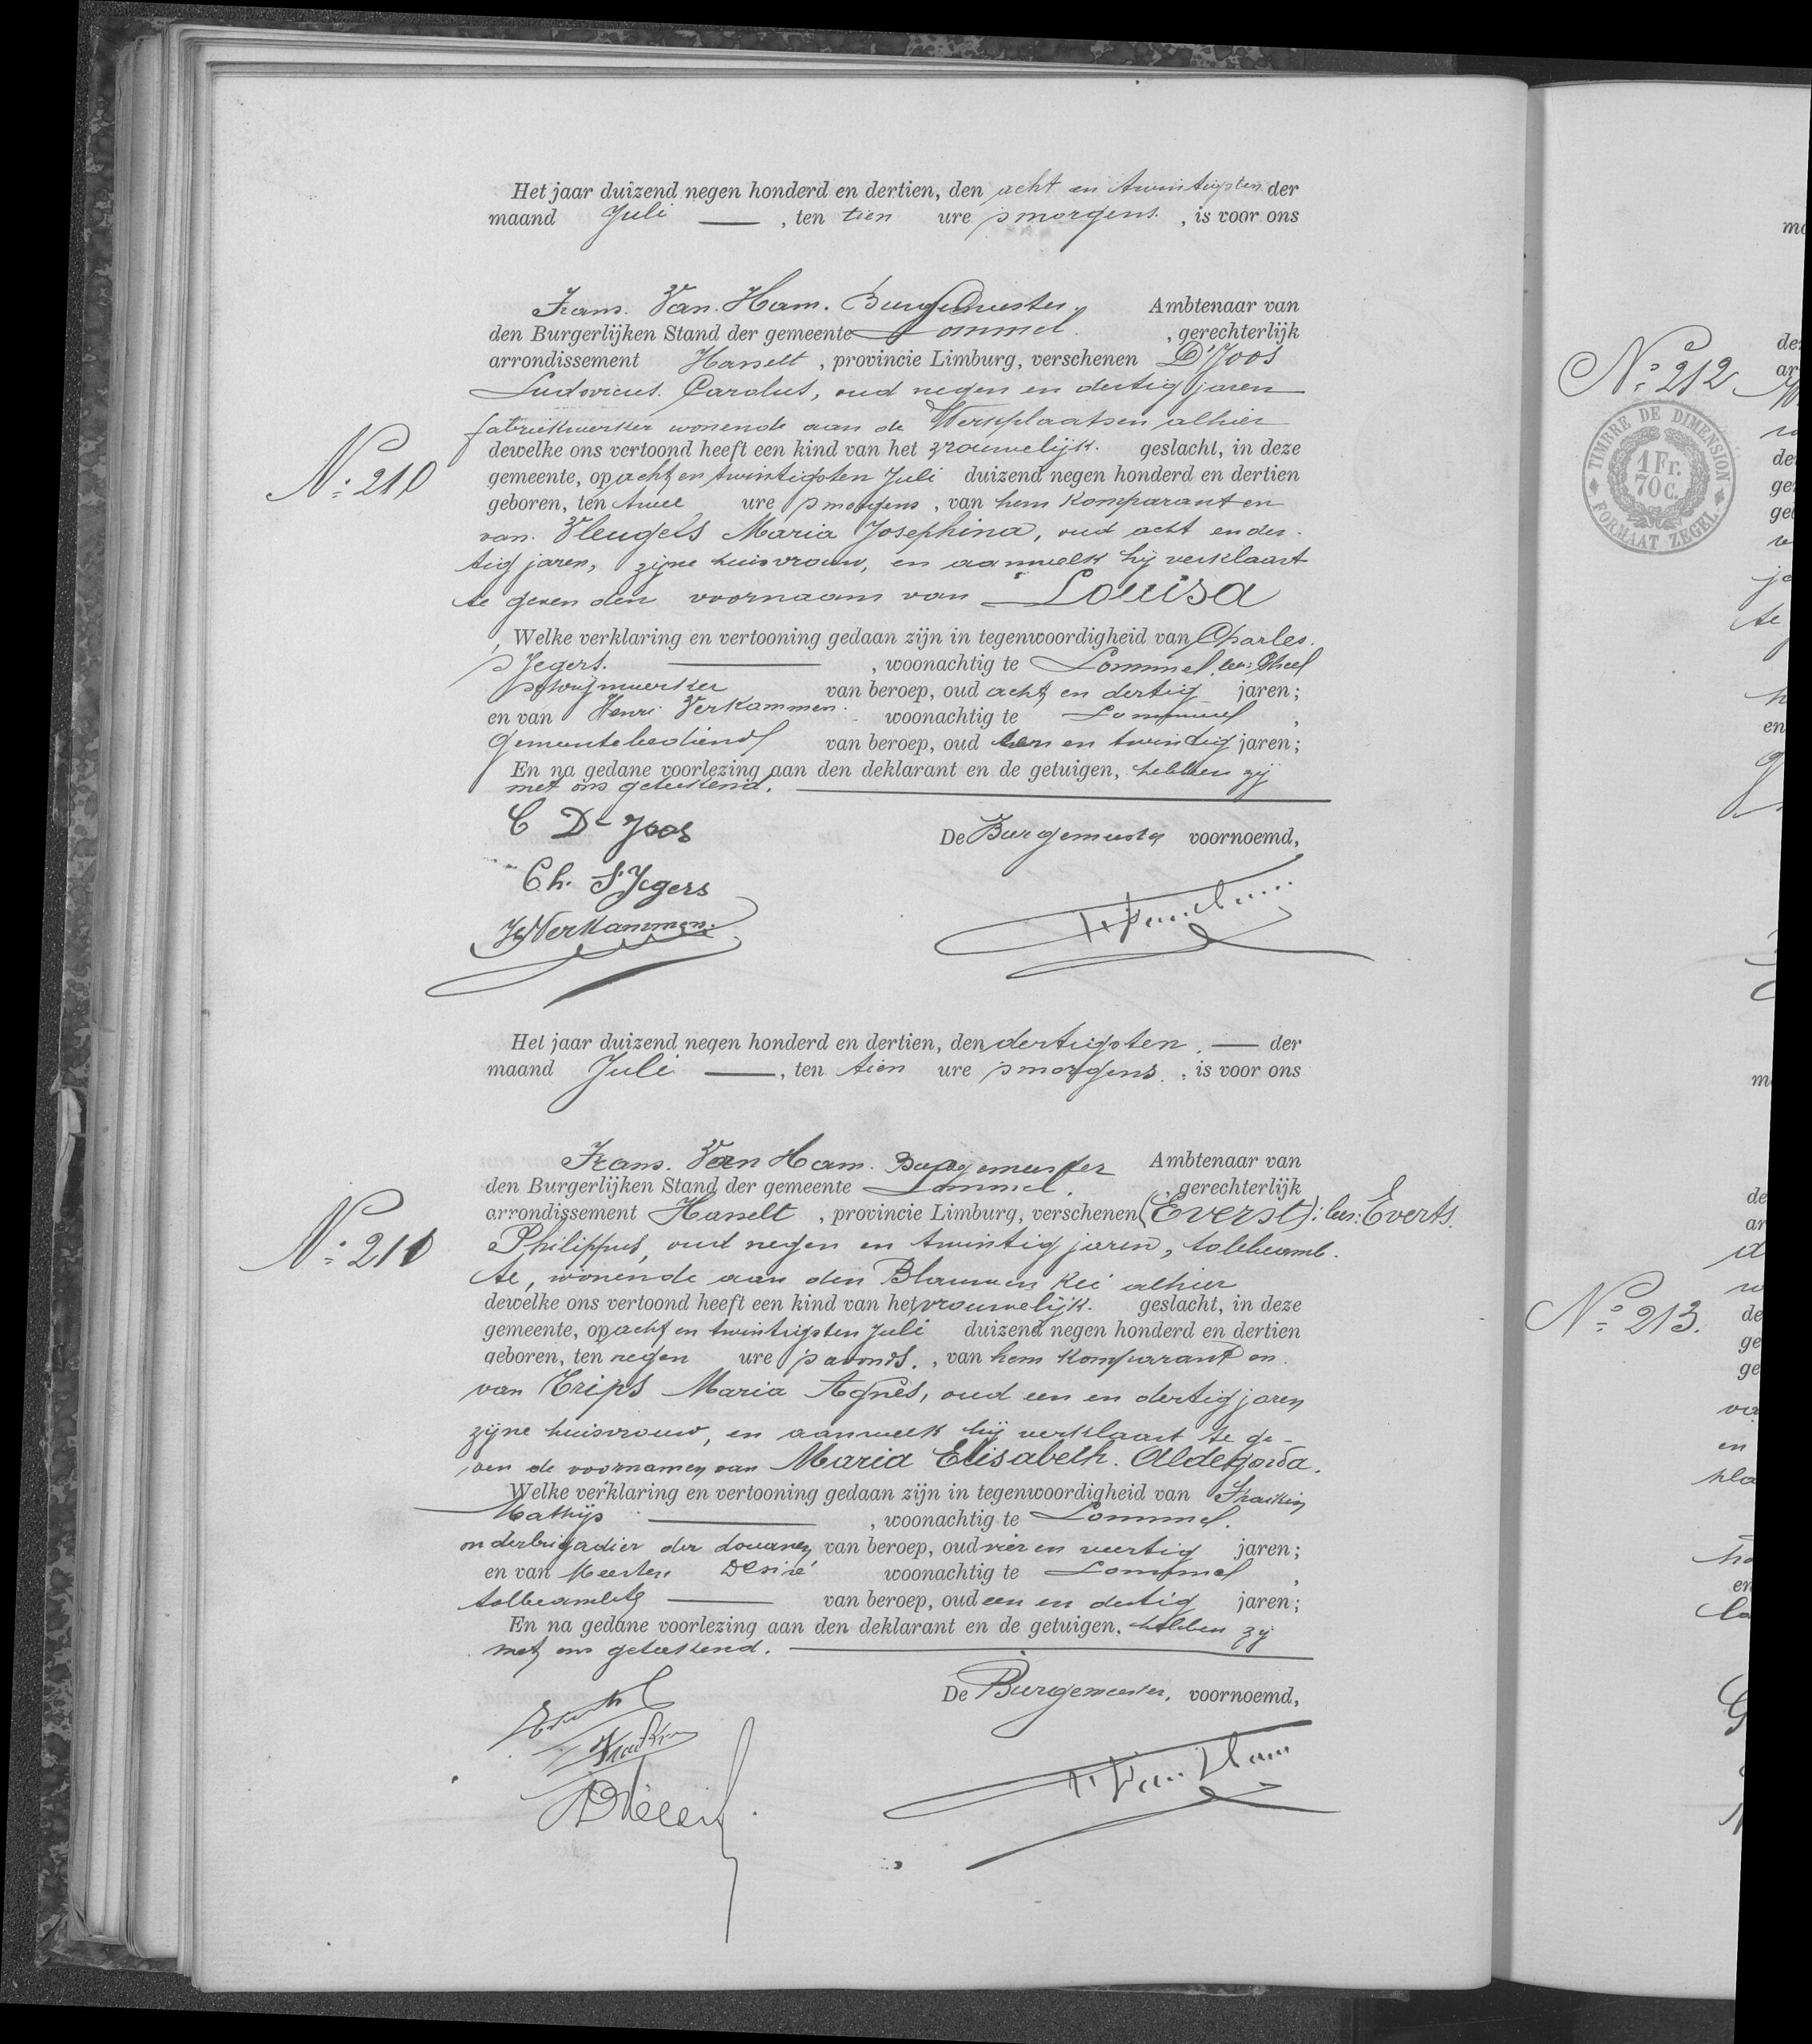 Het jaar duizend negen honderd en dertien, den acht en twintigsten der
maand Juli , ten tien ure smorgens , is voor ons
Frans. Van. Ham. Burgemeester. Ambtenaar van
den Burgerlijken Stand der gemeente Lommel. , gerechterlijk
arrondissement Hasselt , provincie Limburg, verschenen D'Joos
Ludovicus. Carolus, oud negen en dertig jaren
fabriekwerker wonende aan de Werkplaatsen alhier
dewelke ons vertoond heeft een kind van het vrouwelijk. geslacht, in deze
N.º 210
gemeente, op acht en twintigsten Juli duizend negen honderd en dertien
geboren, ten twee ure smorgens , van hem komparant en
van. Vleugels Maria Josephina, oud acht en der-
tig jaren, zijne huisvrouw, en aanwelk hij verklaart
te geven den voornaam van Louisa
Welke verklaring en vertooning gedaan zijn in tegenwoordigheid van Charles.
s'Jegers. , woonachtig te Lommel.
van beroep, oud acht en dertig jaren;
en van Henri Verkammen. woonachtig te Lommel ,
Gemeentebediende van beroep, oud en twintig jaren;
En na gedane voorlezing aan den deklarant en de getuigen, hebben zij
met ons geteekend.
C D'Joos
De Burgemeester voornoemd,
Ch. S'Jegers
HVerkammen.
Het jaar duizend negen honderd en dertien, den dertigsten. der
maand Juli , ten tien ure smorgens. , is voor ons
Frans. Van Ham. Burgemeester Ambtenaar van
den Burgerlijken Stand der gemeente Lommel. , gerechterlijk
arrondissement Hasselt , provincie Limburg, verschenen (Everst): lees: Everts.
N.º 211
Philippus, oud negen en twintig jaren, tolbeamb-
te, wonende aan den Blauwen Kei alhier
dewelke ons vertoond heeft een kind van het vrouwelijk. geslacht, in deze
gemeente, op acht en twintigsten Juli duizend negen honderd en dertien
geboren, ten negen ure 's avonds. , van hem komparant en
van Trips Maria Agnes, oud een en dertig jaren
zijne huisvrouw, en aanwelk hij verklaart te ge-
ven de voornamen van Maria Elisabeth. Aldegonda.
Welke verklaring en vertooning gedaan zijn in tegenwoordigheid van Frankin
Mathijs , woonachtig te Lommel.
onderbrigadier der douanen van beroep, oud vier en veertig jaren;
en van Meesters Desiré woonachtig te Lommel ,
tolbeambte van beroep, oud een en dertig jaren;
En na gedane voorlezing aan den deklarant en de getuigen, hebben zij
met ons geteekend.
De Burgemeester, voornoemd,
F. Van Ham
N.º 212
TIMBRE DE DIMENSION
1 Fr.
70 C.
FORMAAT ZEGEL
N.º 213.